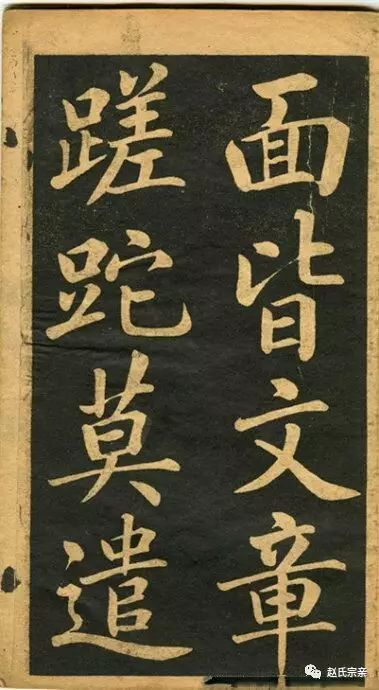 面皆文章
蹉跎莫遣
赵氏宗亲